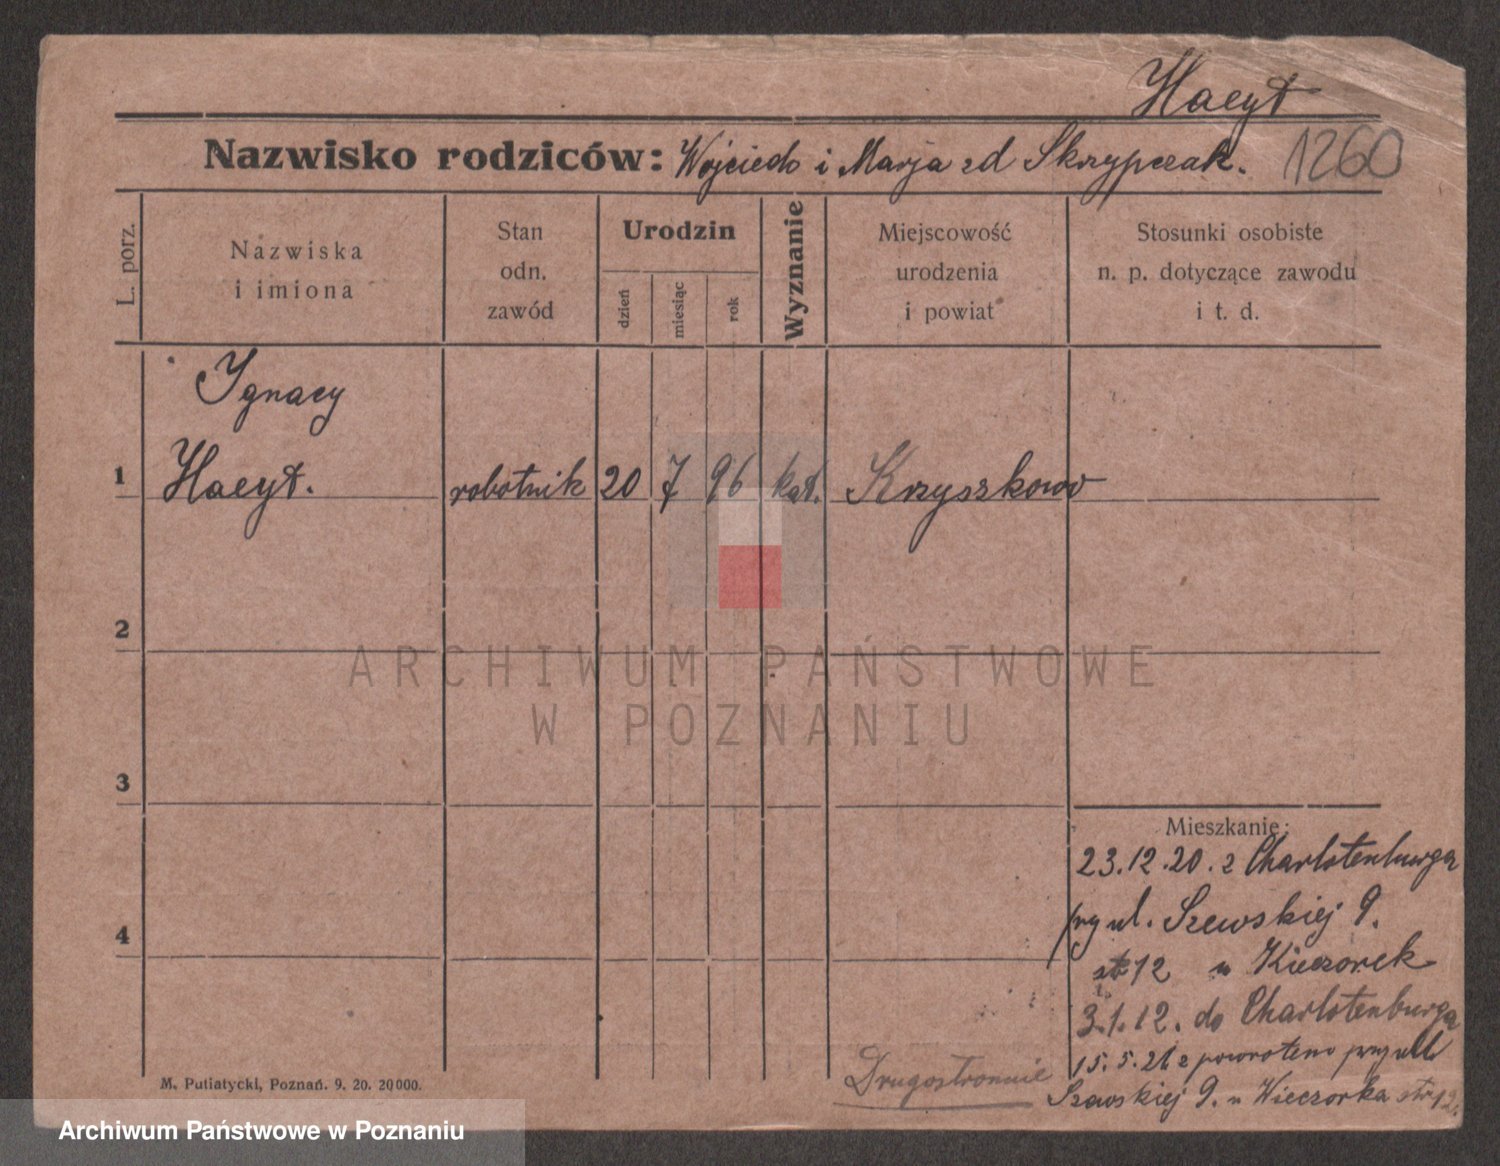 Hacyt
Nazwisko rodziców: Wojciech i Marja zd Skrzypczak. 1260
L. porz.
Nazwiska
i imiona
Stan
odn.
zawód
Urodzin
dzień
miesiąc
rok
Wyznanie
Miejscowość
urodzenia
i powiat
Stosunki osobiste
n. p. dotyczące zawodu
i t. d.
Ignacy
1 Hacyt. robotnik 20 7 96 kat. Krzyszkowo
2
ARCHIWUM PAŃSTWOWE
W POZNANIU
3
Mieszkanie:
23.12.20. z Charlotenburga
przy ul. Szewskiej 9.
4
str 12 u Wieczorek
3.1.12. do Charlotenburga
15.5.21 z powrotem przy ul
Drugostronnie
Szewskiej 9. u Wieczorka str 12.
M. Putiatycki, Poznań. 9. 20. 20000.
Archiwum Państwowe w Poznaniu